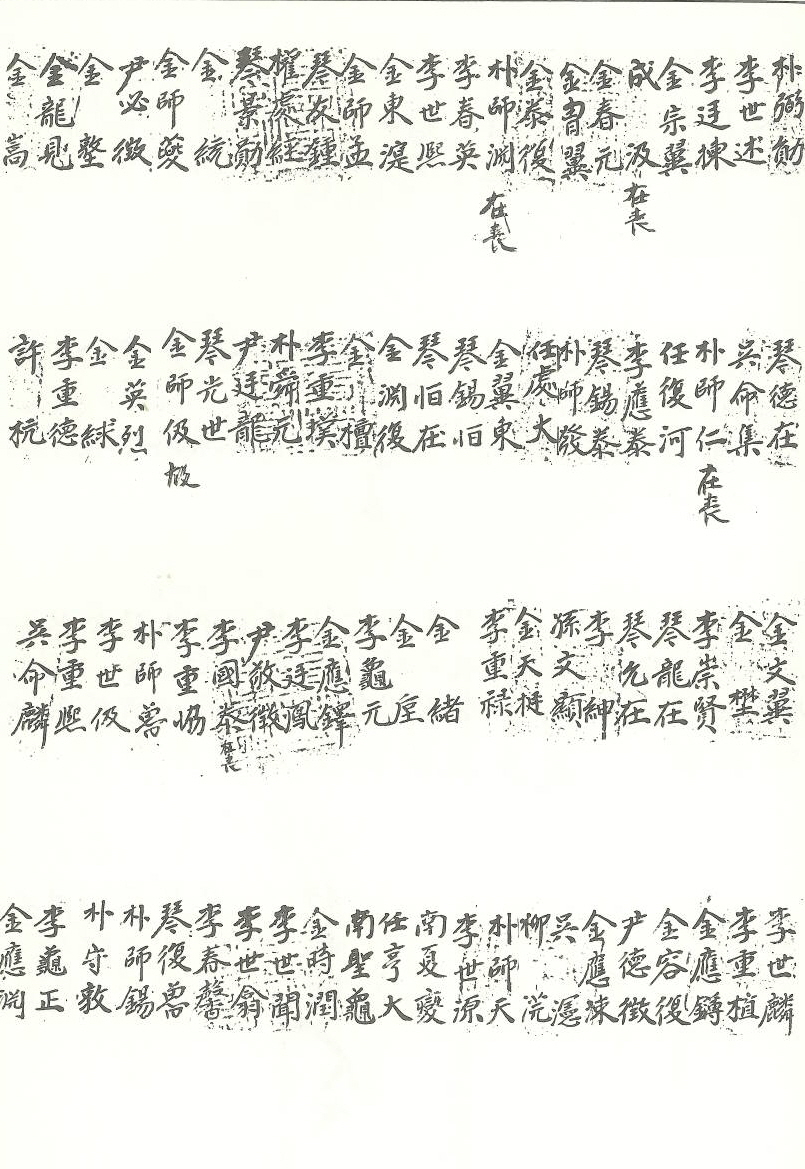 朴弼勛
李世述
李廷棟
金宗翼
金春元
成汲 在喪
金胄翼
金泰復
朴師渊 在喪
李春英
李世熙
金東湜
金師孟
琴友鍾
權處經
琴景勛
金統
金師夔
尹必徵
金整
金龍見
金嵩
琴德在
吳命集
朴師仁 在喪
任復河
李應泰
琴錫泰
朴師發
任處大
金翼東
琴錫怕
琴怕在
金渊復
金檀
李重撲
朴舜元
尹廷龍
琴光世
金師伋 故
金英烈
金絿
李重德
許杭
金文翼
金樊
李崇賢
琴龍在
琴允在
李紳
孫文顯
金天挺
李重禄
金緒
金垕
李龜元
金應鐸
李廷鳳
尹敬徵
李國泰 在喪
李重協
朴師善
李世伋
李重熙
吳命麟
李世麟
李重植
金應鑄
金容復
尹德徵
金應涑
吳濾
柳浣
朴師天
李世源
南夏燮
任亨大
南聖龜
金時潤
李世聞
李世翕
李春馨
琴復善
朴師錫
朴守敦
李龜正
金應渊